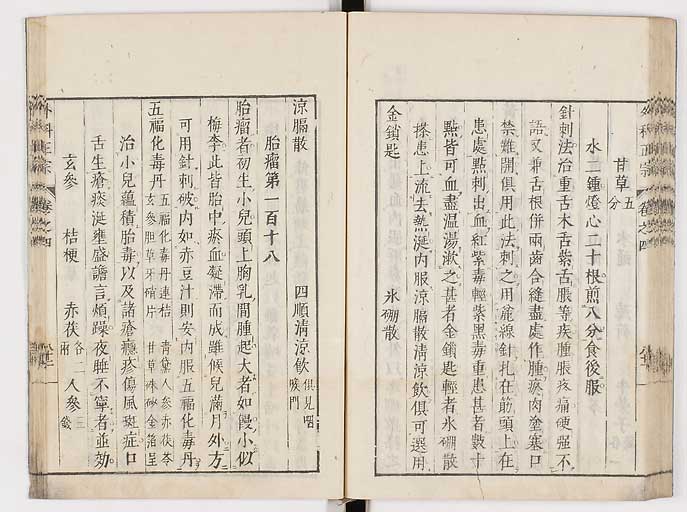 甘草五分
水二鍾燈心二十根煎八分食後服
針刺法治重舌木舌紫舌脹等疾腫脹疼痛硬强不
語又兼舌根併兩齒合縫盡處作腫瘀肉塗塞口
禁難開俱用此法刺之用麄線針扎在筋頭上在
患處點刺出血紅紫毒輕紫黑毒重患甚者數十
點皆可血盡温湯漱之甚者金鎖匙輕者氷硼散
搽患上流去熱涎內服涼膈散淸涼飮俱可選用
金鎖匙
氷硼散
涼膈散
四順淸涼飮俱見咽喉門
胎瘤第一百十八
胎瘤者初生小兒頭上胸乳間腫起大者如饅小似
梅李此皆胎中瘀血凝滯而成雖候兒滿月外方
可用針刺破內如赤豆汁則安內服五福化毒丹
五福化毒丹 五福化毒丹連桔 青黛人參赤茯苓 玄參胆草牙硝片 甘草硃砂金箔呈
治小兒蘊積胎毒以及諸瘡癮疹傷風斑症口
舌生瘡痰涎壅盛譫言煩躁夜睡不寧者並効
玄參 桔梗 赤茯各二兩 人參三錢
外科正宗 卷之四
外科正宗 卷之四